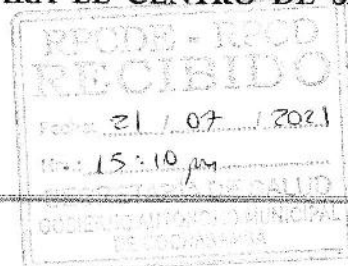 EL CENTRO DE
RPCDE - RPCD
RECIBIDO
Fecha: 21 / 07 / 2021
Hrs.: 15:10 pm
SALUD
GOBIERNO AUTONOMO MUNICIPAL
DE COCHABAMBA